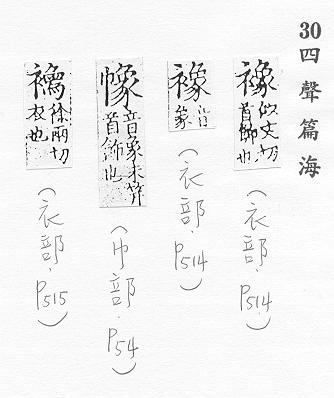 30四聲篇海
襐似丈切
首飾也
(衣部.P514)
襐音
象
(衣部.P514)
音象未笄
首飾也
(巾部.P54)
徐兩切
衣也
(衣部.P515)